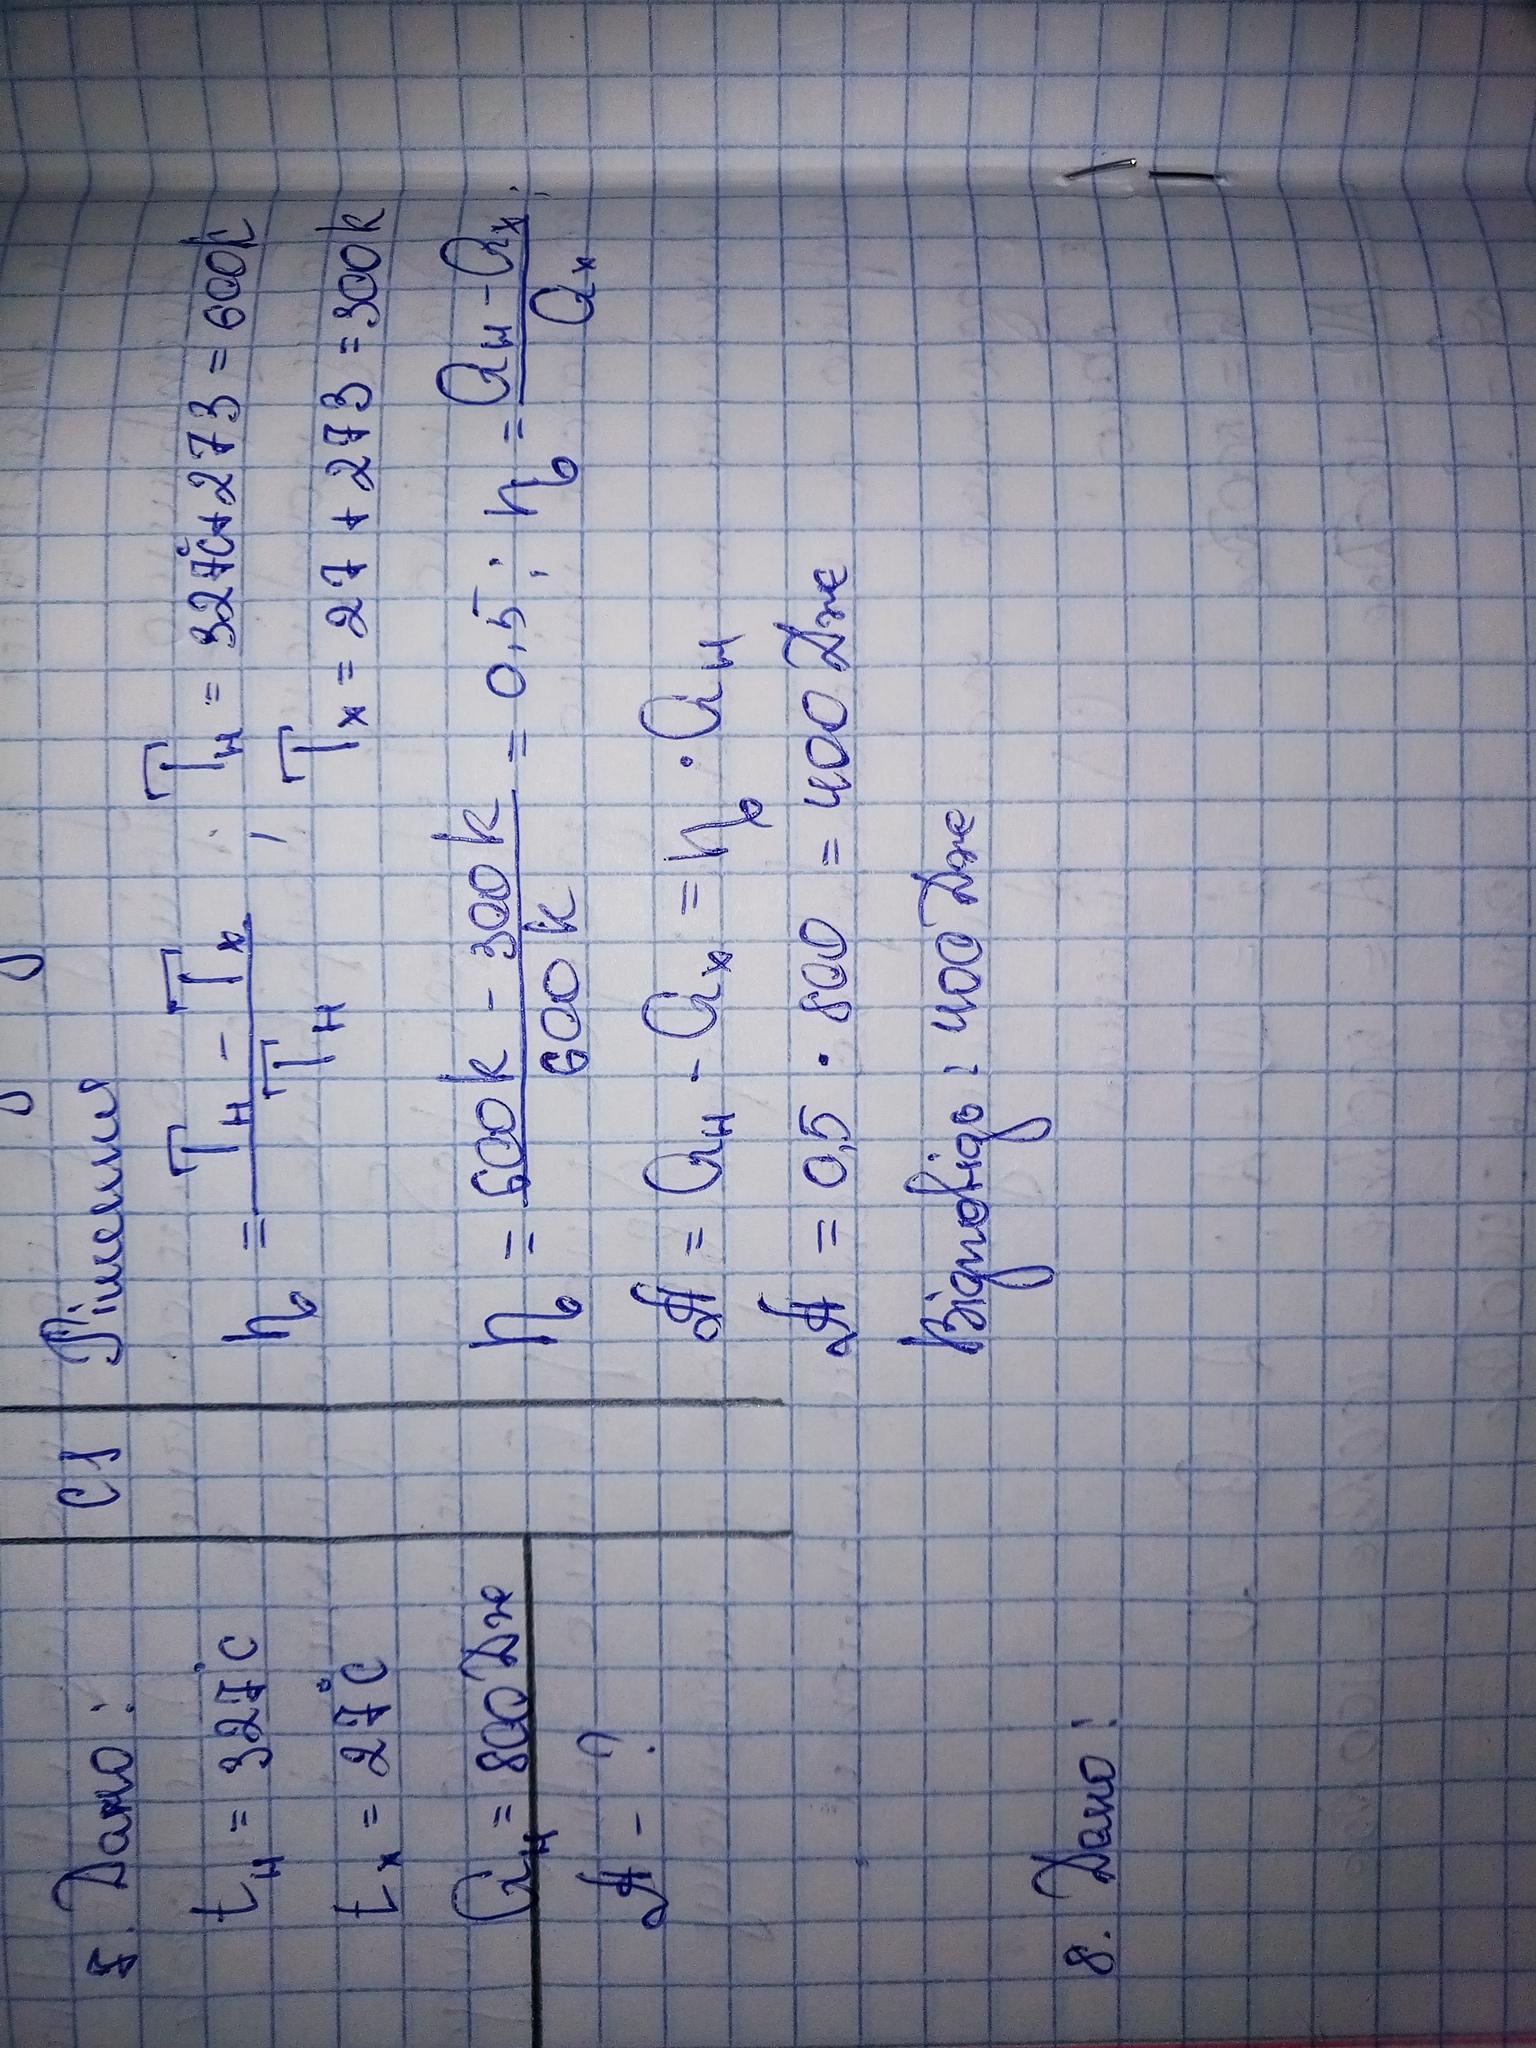 7. Дано:
t_н = 327°C
t_х = 27°C
Q_н = 800 Дж
A - ?
СІ
Рішення
η = (T_н - T_х) / T_н ; T_н = 327°C + 273 = 600k
, T_х = 27 + 273 = 300k
η = (600k - 300k) / 600k = 0,5; η = (Q_н - Q_х) / Q_х ;
A = Q_н - Q_х = η · Q_н
A = 0,5 · 800 = 400 Дж
Відповідь: 400 Дж
8. Дано: